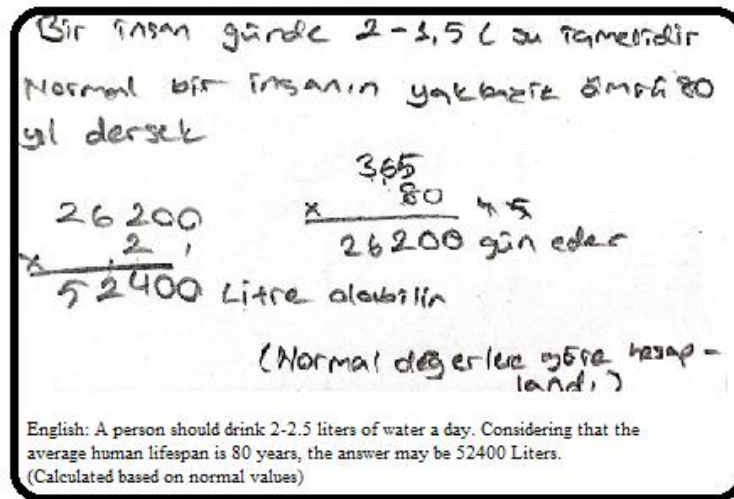 Bir insan günde 2-1,5 L su içmelidir
Normal bir insanın yaklaşık ömrü 80
yıl dersek
365
x 80
26200 gün eder
26200
x 2
52400 Litre olabilir
(Normal değerlere göre hesap-
landı)
English: A person should drink 2-2.5 liters of water a day. Considering that the
average human lifespan is 80 years, the answer may be 52400 Liters.
(Calculated based on normal values)